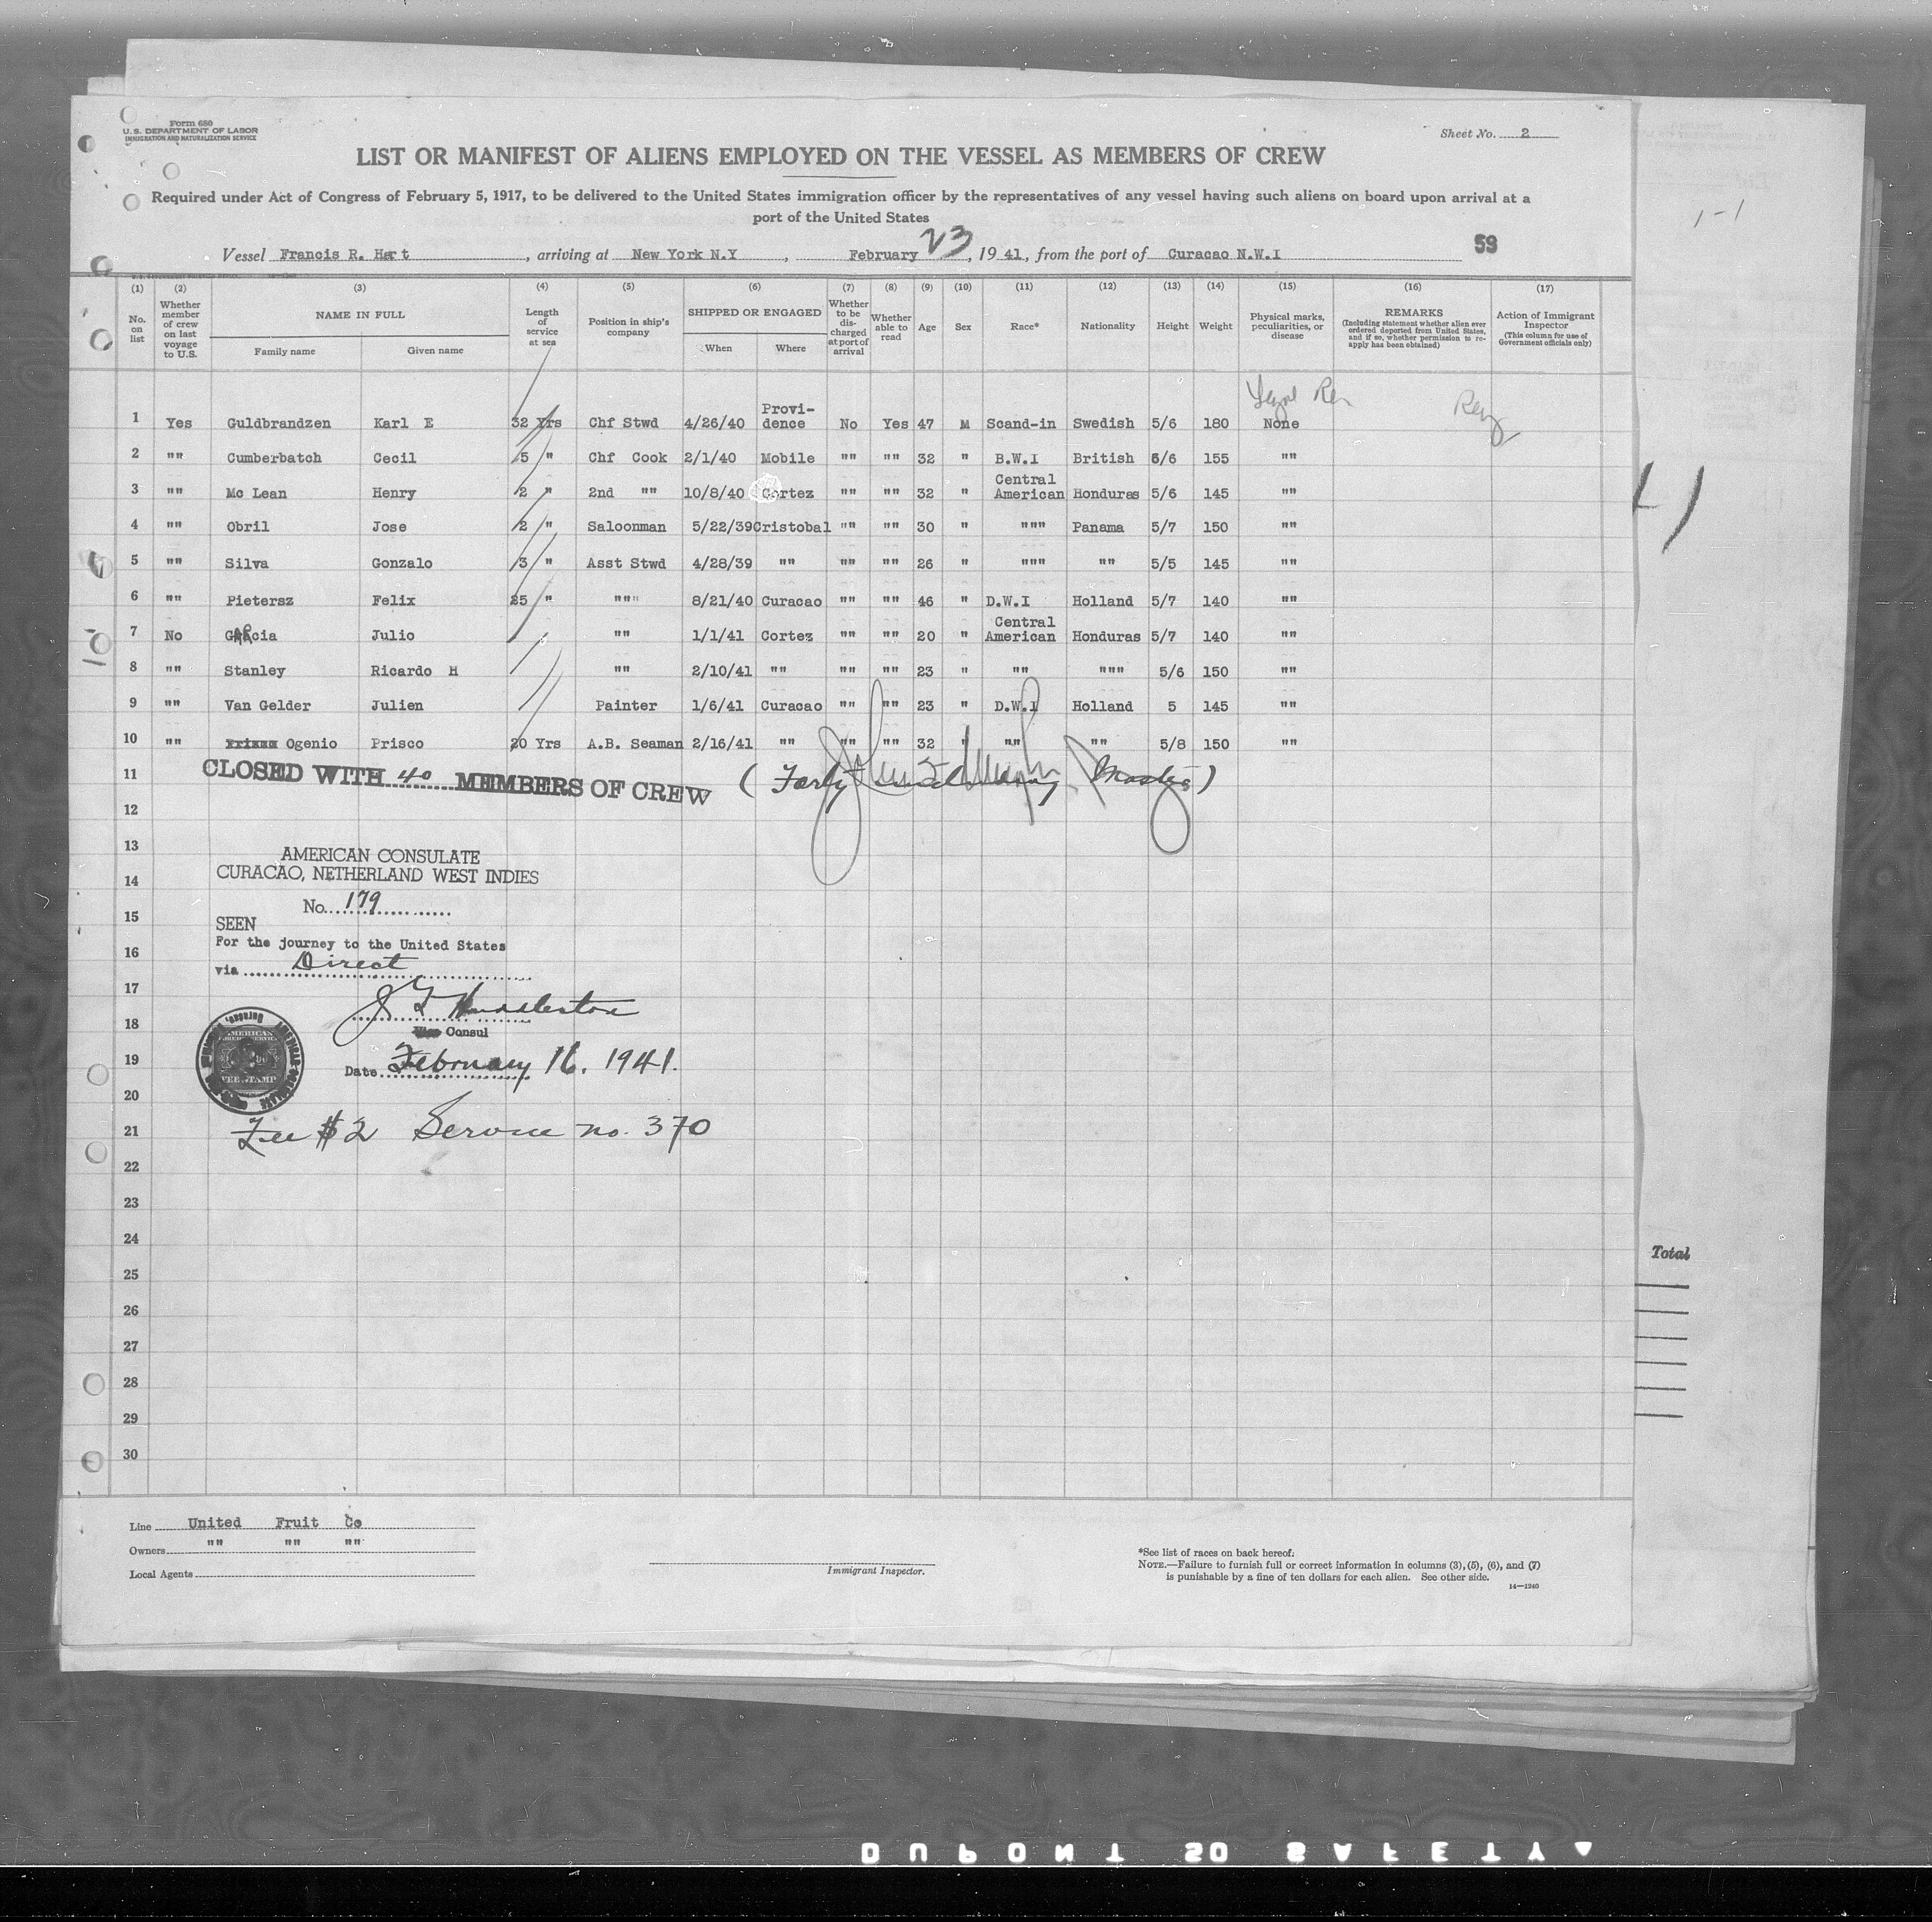 Form 680
U.S. DEPARTMENT OF LABOR
IMMIGRATION AND NATURALIZATION SERVICE
Sheet No. 2
LIST OR MANIFEST OF ALIENS EMPLOYED ON THE VESSEL AS MEMBERS OF CREW
Required under Act of Congress of February 5, 1917, to be delivered to the United States immigration officer by the representatives of any vessel having such aliens on board upon arrival at a
port of the United States
1-1
Vessel Francis R. Hart, arriving at New York N.Y, February 23, 1941, from the port of Curacao N.W.I 59
(1) No. on list
(2) Whether member of crew on last voyage to U.S.
(3) NAME IN FULL Family name Given name
(4) Length of service at sea
(5) Position in ship's company
(6) SHIPPED OR ENGAGED When Where
(7) Whether to be discharged at port of arrival
(8) Whether able to read
(9) Age
(10) Sex
(11) Race*
(12) Nationality
(13) Height
(14) Weight
(15) Physical marks, peculiarities, or disease
(16) REMARKS (Including statement whether alien ever ordered deported from United States, and if so, whether permission to reapply has been obtained)
(17) Action of Immigrant Inspector (This column for use of Government officials only)
1 Yes Guldbrandzen Karl E 32 Yrs Chf Stwd 4/26/40 Providence No Yes 47 M Scand-in Swedish 5/6 180 None
2 "" Cumberbatch Cecil 5 " Chf Cook 2/1/40 Mobile "" "" 32 " B.W.I British 6/6 155 ""
3 "" Mc Lean Henry 2 " 2nd "" 10/8/40 Cortez "" "" 32 " Central American Honduras 5/6 145 ""
4 "" Obril Jose 2 " Saloonman 5/22/39 Cristobal "" "" 30 " """ Panama 5/7 150 ""
5 "" Silva Gonzalo 3 " Asst Stwd 4/28/39 "" "" "" 26 " """ "" 5/5 145 ""
6 "" Pietersz Felix 25 " """ 8/21/40 Curacao "" "" 46 " D.W.I Holland 5/7 140 ""
7 No Garcia Julio "" 1/1/41 Cortez "" "" 20 " Central American Honduras 5/7 140 ""
8 "" Stanley Ricardo H "" 2/10/41 "" "" "" 23 " "" """ 5/6 150 ""
9 "" Van Gelder Julien Painter 1/6/41 Curacao "" "" 23 " D.W.I Holland 5 145 ""
10 "" Ogenio Prisco 20 Yrs A.B. Seaman 2/16/41 "" "" "" 32 " "" "" 5/8 150 ""
11 CLOSED WITH 40 MEMBERS OF CREW (Forty
12
13
AMERICAN CONSULATE
CURACAO, NETHERLAND WEST INDIES
14
No. 179
15
SEEN
For the journey to the United States
16
via Direct
17
J G Huddleston
18
Consul
19
Date February 16, 1941.
AMERICAN
FEE STAMP
20
21
Fee $2 Service no. 370
22
23
24
25
26
27
28
29
30
Total
Line United Fruit Co
Owners "" "" ""
Local Agents
Immigrant Inspector.
*See list of races on back hereof.
NOTE.—Failure to furnish full or correct information in columns (3), (5), (6), and (7)
is punishable by a fine of ten dollars for each alien. See other side.
14—1240
DUPONT 50 SAFETY